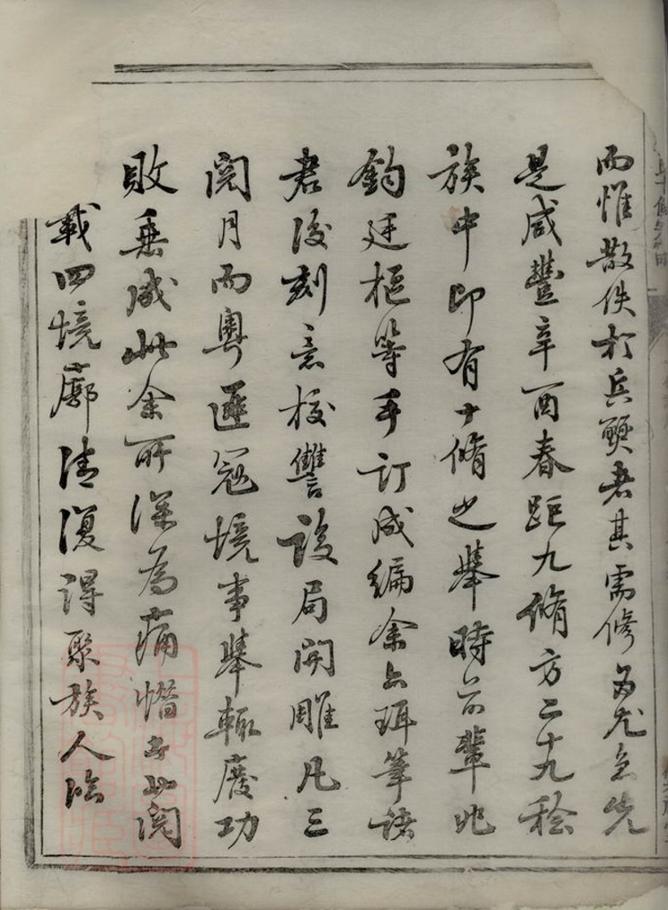 而惟散佚於兵燹者其需修為尤急先
是咸豐辛酉春距九脩方二十九稔
族中即有十脩之舉時前輩兆
鈞廷樞等手訂成編余亦珥筆諸
君後刻意校讐設局開雕凡三
閱月而粵匪寇境事舉輒廢功
敗垂成此余所深為痛惜者此閱
載四境廓清復得聚族人臨